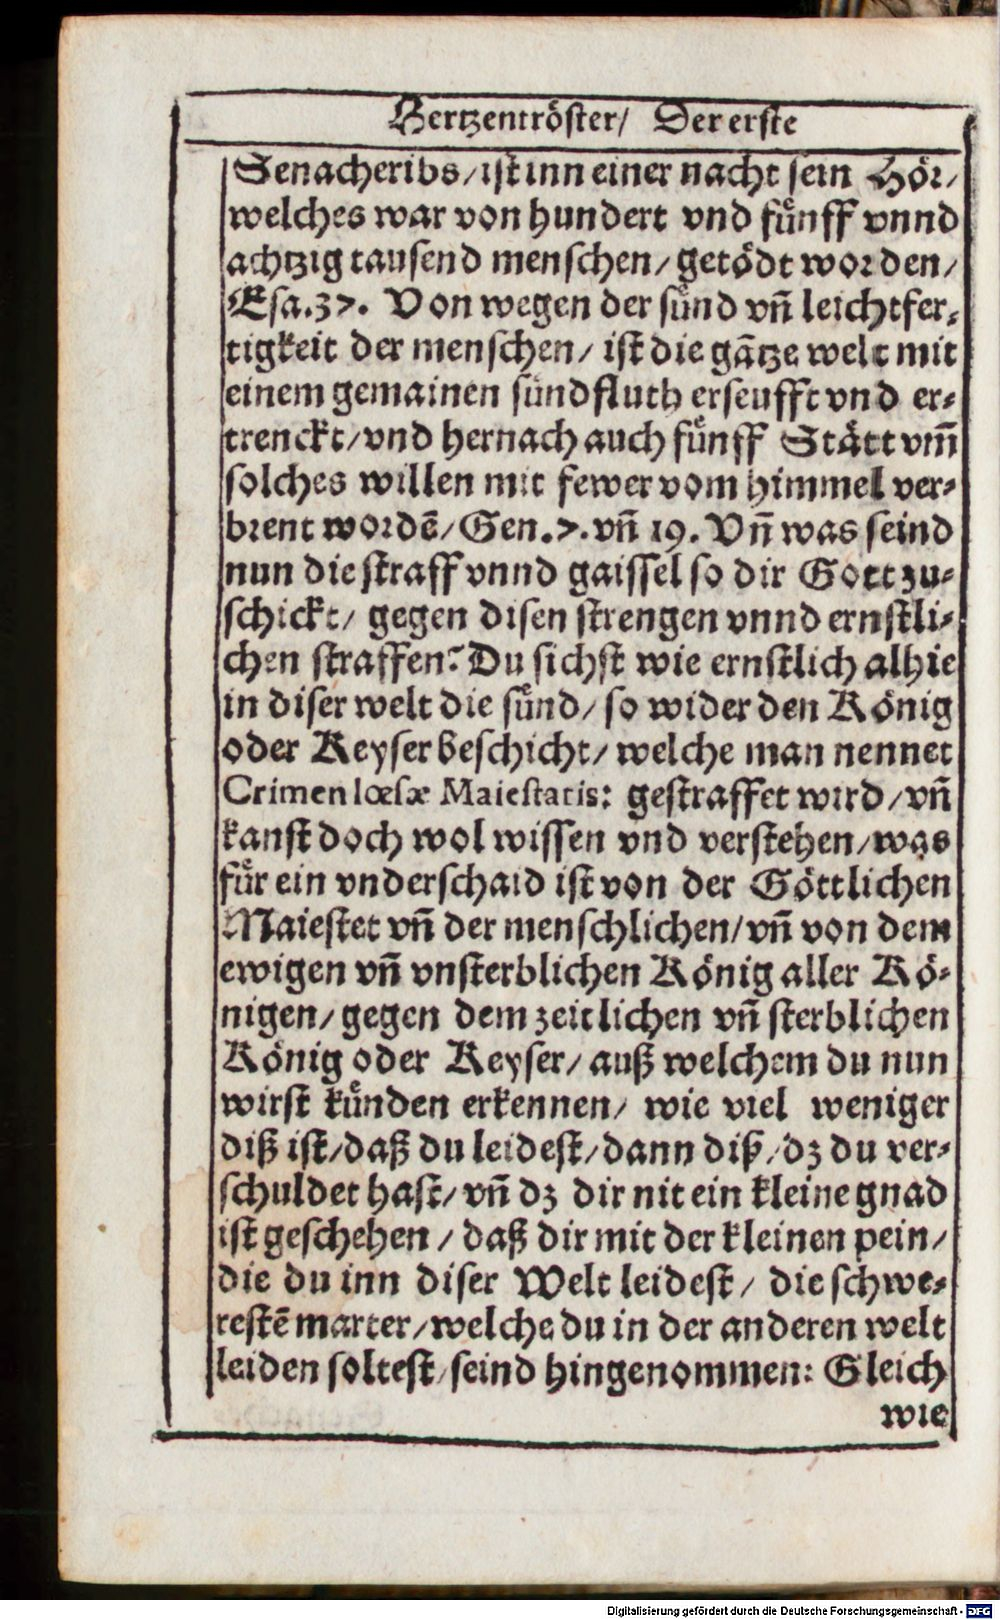 Hertzentröster/ Der erste
Senacheribs/ist inn einer nacht sein Hör/
welches war von hundert vnd fünff vnnd
achtzig tausend menschen/ getödt worden/
Esa.37. Von wegen der sünd vñ leichtfer-
tigkeit der menschen/ ist die gātze welt mit
einem gemainen sündfluth erseufft vnd er-
trenckt/vnd hernach auch fünff Stätt vm̃
solches willen mit fewer vom himmel ver-
brent wordē/Gen.7.vñ 19. Vñ was seind
nun die straff vnnd gaissel so dir Gott zu-
schickt/ gegen disen strengen vnnd ernstli-
chen straffen? Du sichst wie ernstlich alhie
in diser welt die sünd/ so wider den König
oder Keyser beschicht/ welche man nennet
Crimen lœsæ Maiestatis: gestraffet wird/vñ
kanst doch wol wissen vnd verstehen/was
für ein vnderschaid ist von der Göttlichen
Maiestet vñ der menschlichen/vñ von dem
ewigen vñ vnsterblichen König aller Kö-
nigen/gegen dem zeitlichen vñ sterblichen
König oder Keyser/ auß welchem du nun
wirst künden erkennen/ wie viel weniger
diß ist/daß du leidest/dann diß/dz du ver-
schuldet hast/vñ dz dir nit ein kleine gnad
ist geschehen/ daß dir mit der kleinen pein/
die du inn diser Welt leidest/ die schwe-
restē marter/welche du in der anderen welt
leiden soltest/seind hingenommen: Gleich
wie
Digitalisierung gefördert durch die Deutsche Forschungsgemeinschaft - DFG